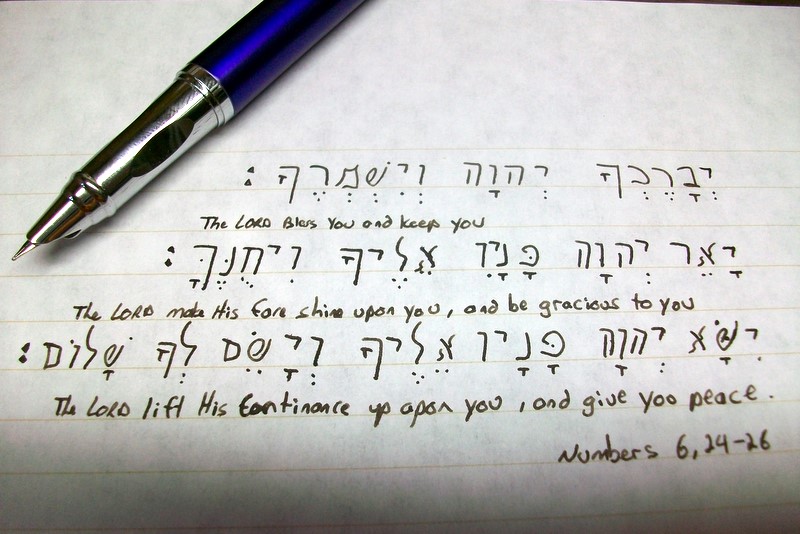 יְבָרֶכְךָ יְהוָה וְיִשְׁמְרֶךָ׃
The LORD Bless You and keep you
יָאֵר יְהוָה פָּנָיו אֵלֶיךָ וִיחֻנֶּךָּ׃
The LORD make His face shine upon you, and be gracious to you
יִשָּׂא יְהוָה פָּנָיו אֵלֶיךָ וְיָשֵׂם לְךָ שָׁלוֹם׃
The LORD lift His Continance up apon you, and give yoo peace.
Numbers 6,24-26